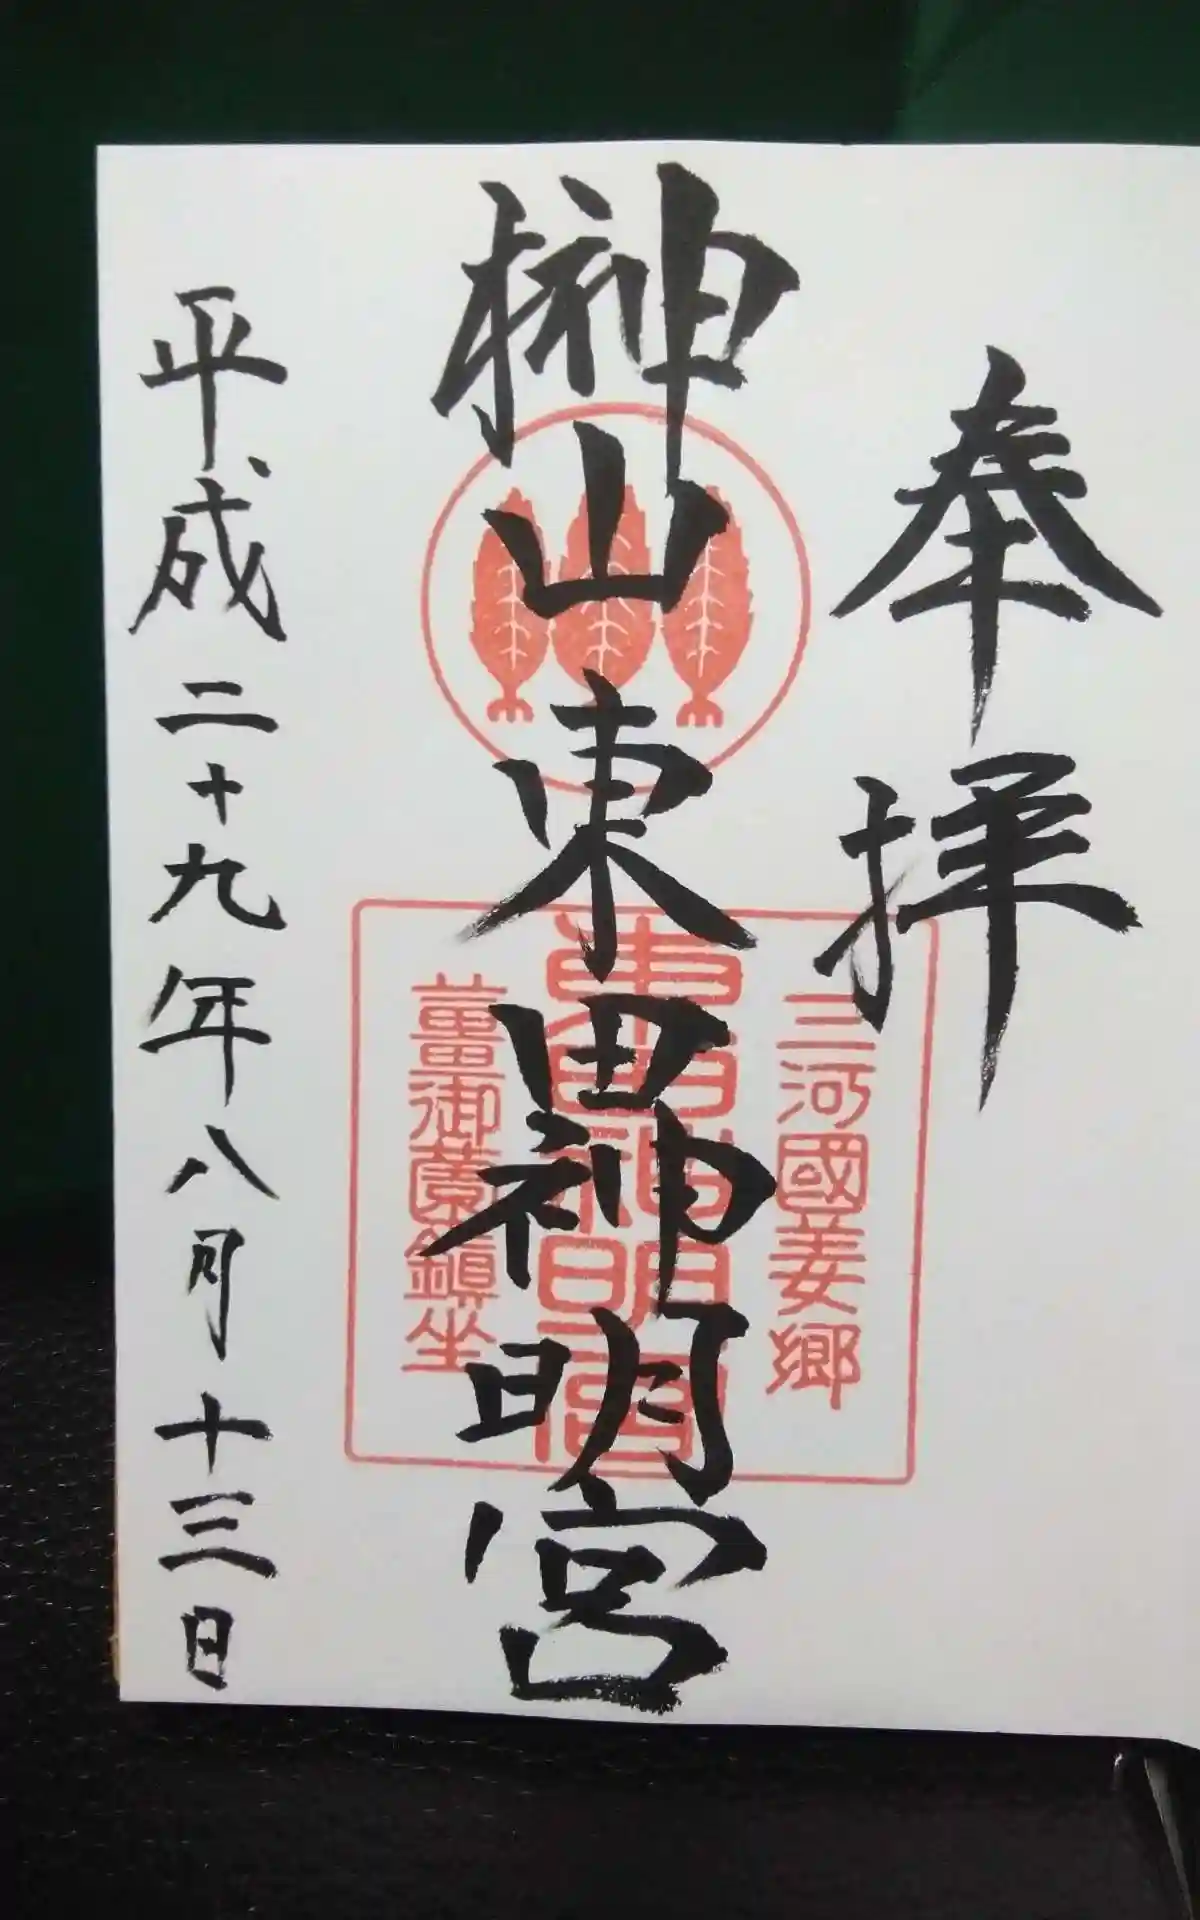 奉拝
榊山東田神明宮
三河國姜郷
東田神明宮
薑御薗鎮坐
平成二十九年八月十三日